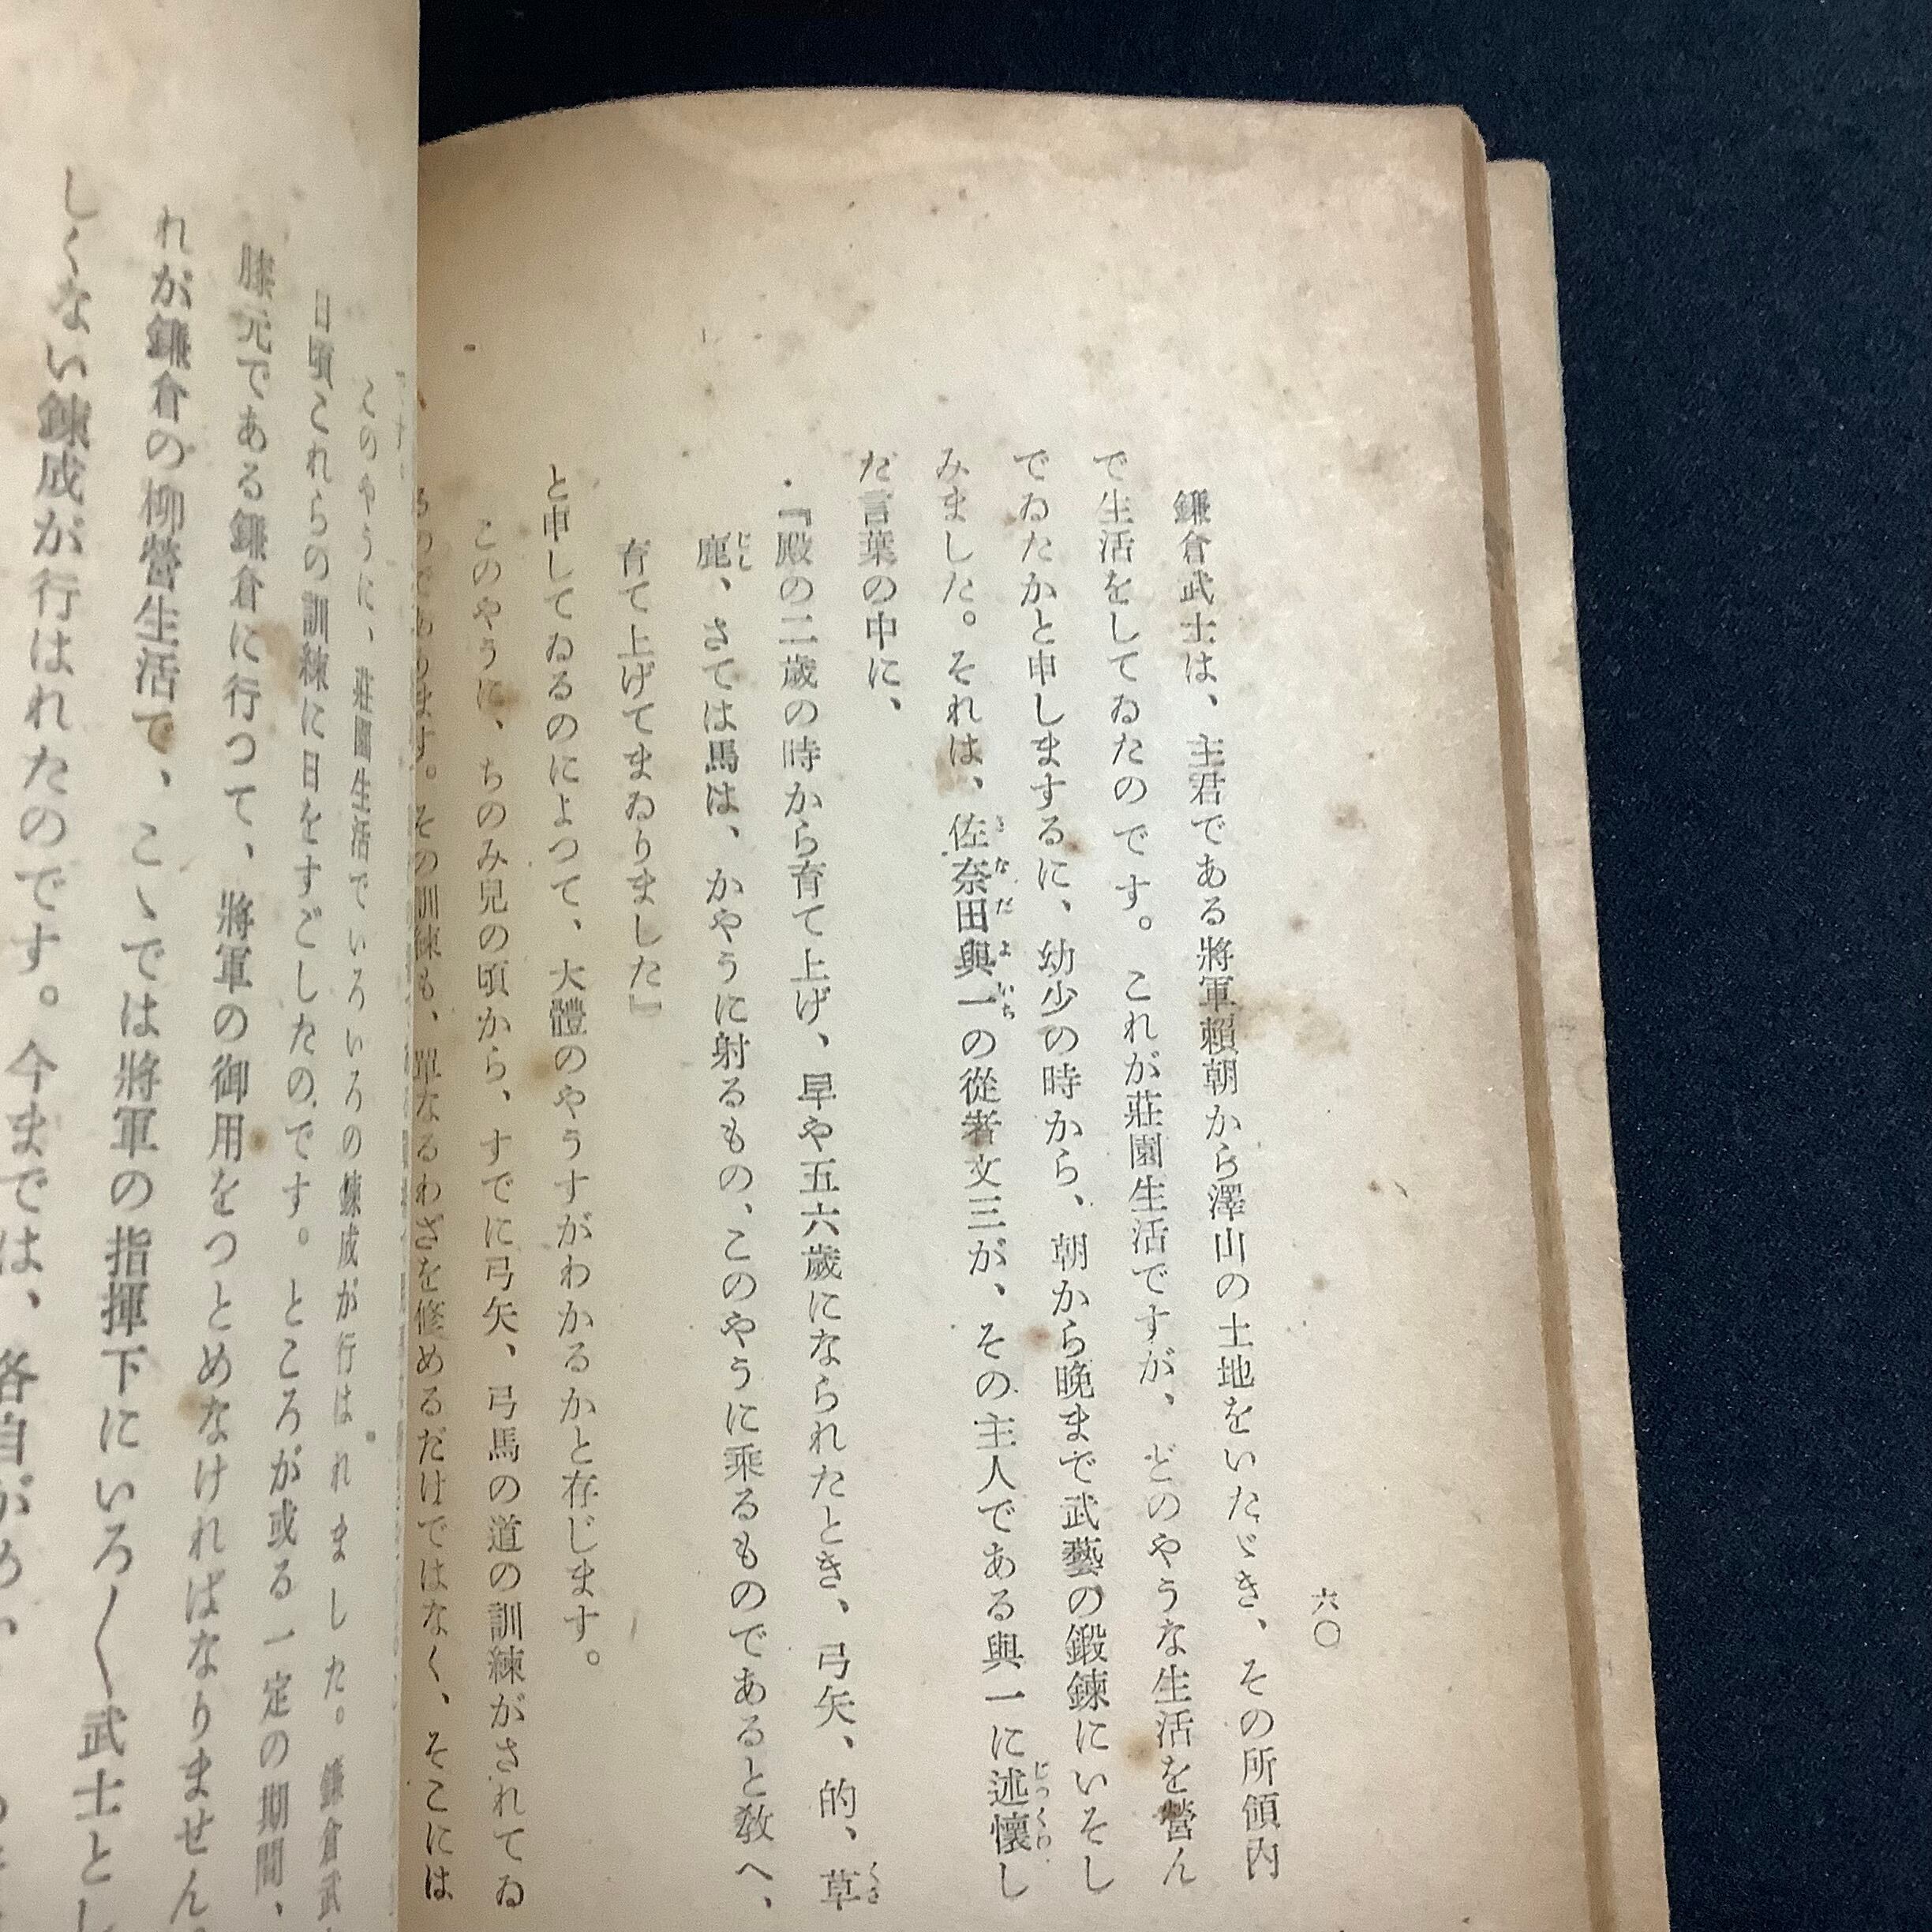 六〇
鎌倉武士は、主君である將軍賴朝から澤山の土地をいたゞき、その所領内
で生活をしてゐたのです。これが莊園生活ですが、どのやうな生活を營ん
でゐたかと申しまするに、幼少の時から、朝から晩まで武藝の鍛鍊にいそし
みました。それは、佐奈田與一の從者文三が、その主人である與一に述懷し
さなだよいち
じつくわい
だ言葉の中に、
『殿の二歲の時から育て上げ、早や五六歲になられたとき、弓矢、的、草
くさ
鹿、さては馬は、かやうに射るもの、このやうに乘るものであると敎へ、
じし
育て上げてまゐりました』
と申してゐるのによつて、大體のやうすがわかるかと存じます。
このやうに、ちのみ兒の頃から、すでに弓矢、弓馬の道の訓練がされてゐ
るのであります。その訓練も、單なるわざを修めるだけではなく、そこには
このやうに、莊園生活でいろいろの鍊成が行はれました。鎌倉武
日頃これらの訓練に日をすごしたのです。ところが或る一定の期間、
膝元である鎌倉に行つて、將軍の御用をつとめなければなりません。
れが鎌倉の柳營生活で、こゝでは將軍の指揮下にいろ〱武士とし
しくない鍊成が行はれたのです。今までは、各自が